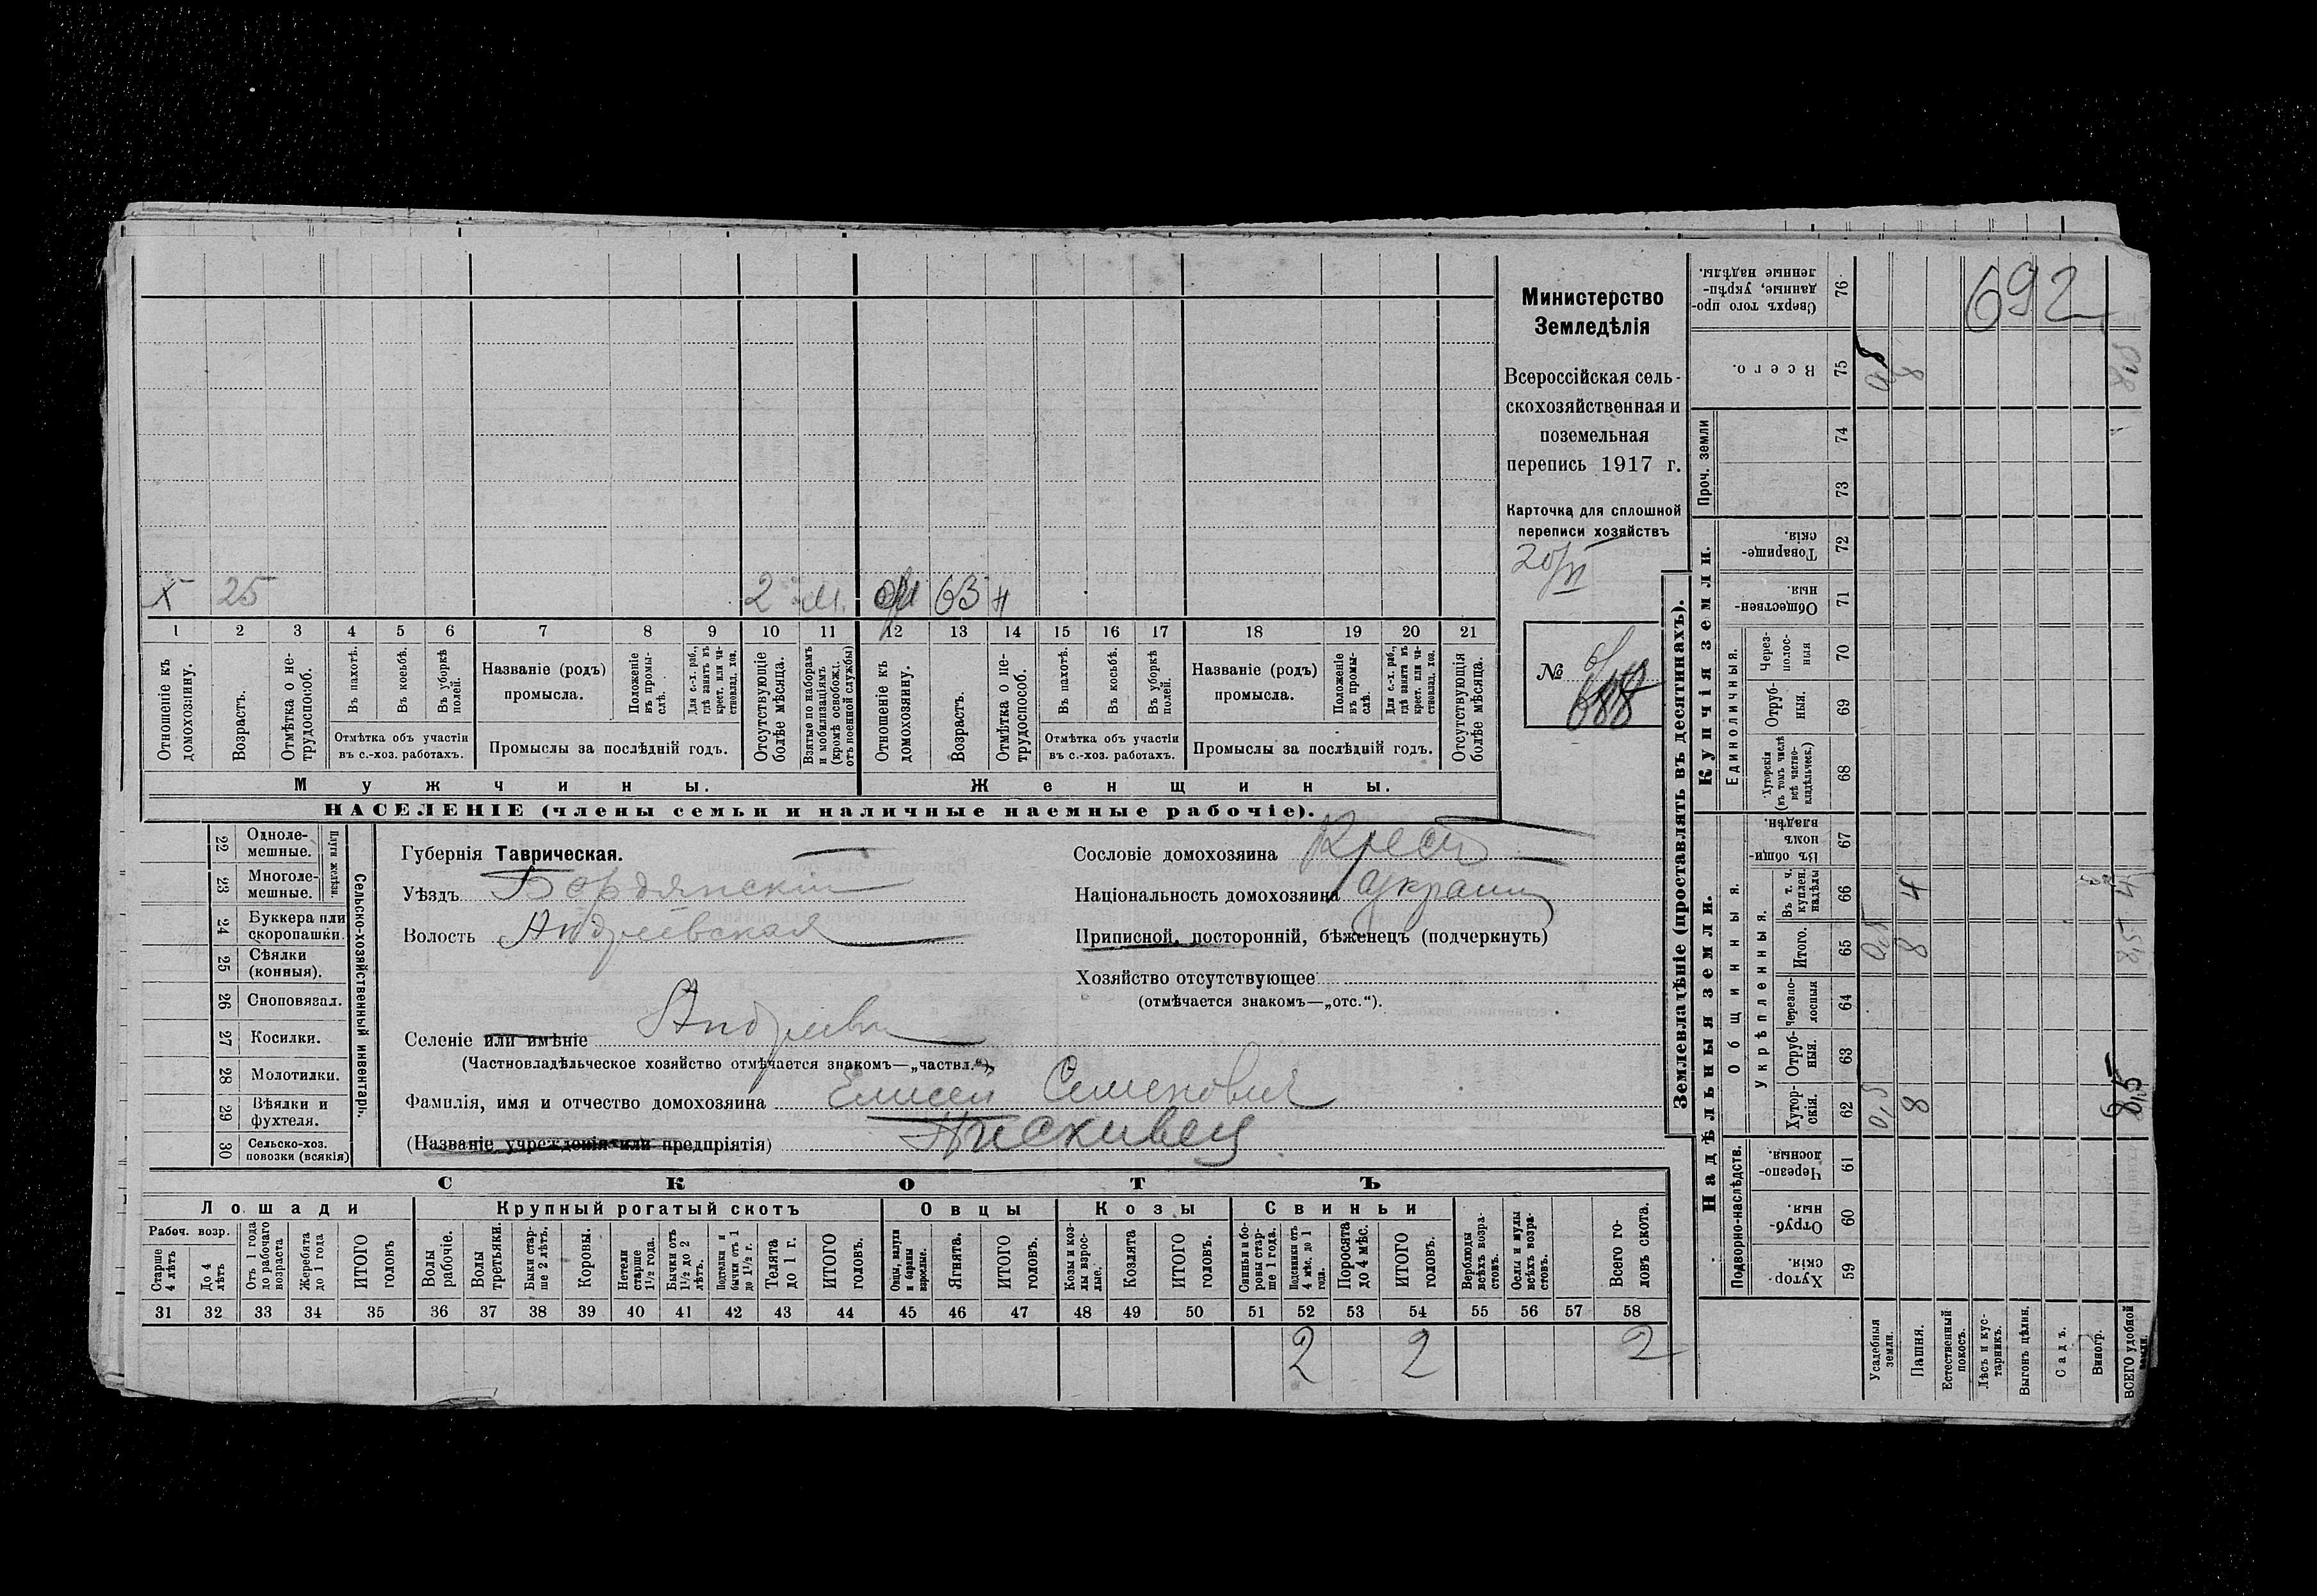 х 25 2 М. м 63 н
1 2 3 4 5 6 7 8 9 10 11 12 13 14 15 16 17 18 19 20 21
Отношеніе къ домохозяину.
Возрастъ.
Отмѣтка о не-трудоспособ.
Въ пахотѣ.
Въ косьбѣ.
Въ уборкѣ полей.
Отмѣтка объ участіи
въ с.-хоз. работахъ.
Названіе (родъ)
промысла.
Положеніе въ промы-слѣ.
Для с.-х. раб., гдѣ занятъ въ крест. или ча-стновлад. хоз.
Промыслы за послѣдній годъ.
Отсутствующіе болѣе мѣсяца.
Взятые по наборамъ и мобилизаціямъ (кромѣ освобожд. отъ военной службы)
Отношеніе къ домохозяину.
Возрастъ.
Отмѣтка о не-трудоспособ.
Въ пахотѣ.
Въ косьбѣ.
Въ уборкѣ полей.
Отмѣтка объ участіи
въ с.-хоз. работахъ.
Названіе (родъ)
промысла.
Положеніе въ промы-слѣ.
Для с.-х. раб., гдѣ занята въ крест. или ча-стновлад. хоз.
Промыслы за послѣдній годъ.
Отсутствующія болѣе мѣсяца.
Мужчины.
Женщины.
НАСЕЛЕНІЕ (члены семьи и наличные наемные рабочіе).
Министерство
Земледѣлія
Всероссійская сель-
скохозяйственная и
поземельная
перепись 1917 г.
Карточка для сплошной
переписи хозяйствъ
20/VI
№ 688
Сельско-хозяйственный инвентарь.
Плуги желѣзн.
22 Одноле-
мешные.
23 Многоле-
мешные.
24 Буккера или
скоропашки.
25 Сѣялки
(конныя).
26 Сноповязал.
27 Косилки.
28 Молотилки.
29 Вѣялки и
фухтеля.
30 Сельско-хоз.
повозки (всякія)
Губернія Таврическая.
Уѣздъ Бердянскій
Волость Андреевская
Селеніе или имѣніе Андреевк
(Частновладѣльческое хозяйство отмѣчается знакомъ—„частвл.“).
Фамилія, имя и отчество домохозяина Елисей Семенович
(Названіе учрежденія или предпріятія) Пискивец
Сословіе домохозяина Крест
Національность домохозяина Украин
Приписной, посторонній, бѣженецъ (подчеркнуть)
Хозяйство отсутствующее
(отмѣчается знакомъ—„отс.“).
СКОТЪ
Лошади
Крупный рогатый скотъ
Овцы
Козы
Свиньи
Рабоч. возр.
Старше 4 лѣтъ
До 4 лѣтъ
Отъ 1 года до рабочаго возраста
Жеребята до 1 года
ИТОГО головъ
Волы рабочіе.
Волы третьяки.
Быки стар-ше 2 лѣтъ.
Коровы.
Нетели старше 1½ года.
Бычки отъ 1½ до 2 лѣтъ.
Подтелки и бычки отъ 1 до 1½ г.
Телята до 1 г.
ИТОГО головъ.
Овцы, валухи и бараны взрослые.
Ягнята.
ИТОГО головъ.
Козы и коз-лы взрос-лые.
Козлята
ИТОГО головъ.
Свиньи и бо-ровы стар-ше 1 года.
Подсвинки отъ 4 мѣс. до 1 года.
Поросята до 4 мѣс.
ИТОГО головъ.
Верблюды всѣхъ возра-стовъ.
Ослы и мулы всѣхъ возра-стовъ.
Всего го-ловъ скота.
31 32 33 34 35 36 37 38 39 40 41 42 43 44 45 46 47 48 49 50 51 52 53 54 55 56 57 58
2 2 2
Землевладѣніе (проставлять въ десятинахъ).
692
Сверхъ того про-данные, укрѣп-ленные надѣлы. 76
Всего. 75 8
Проч. земли
74
73
Купчія земли.
Товарище-скія. 72
Обществен-ныя. 71
Единоличныя.
Через-полос-ныя 70
Отруб-ныя. 69
Хуторскія (въ томъ числѣ всѣ частно-владѣльческ.) 68
Надѣльныя земли.
Общинныя.
Въ общи-номъ владѣн. 67
Укрѣпленныя.
Въ т. ч. куплен. надѣлы 66 4 4
Итого. 65 0,5 8 8,5
Черезпо-лосныя 64
Отруб-ныя. 63
Хутор-скія. 62 0,5 8 8,5
Подворно-наслѣдств.
Черезпо-лосныя. 61
Отруб-ныя. 60
Хутор-скія. 59
Усадебныя земли.
Пашня.
Естественный покосъ.
Лѣсъ и кус-тарникъ.
Выгонъ цѣлин.
Садъ.
Виногр.
ВСЕГО удобной земли.